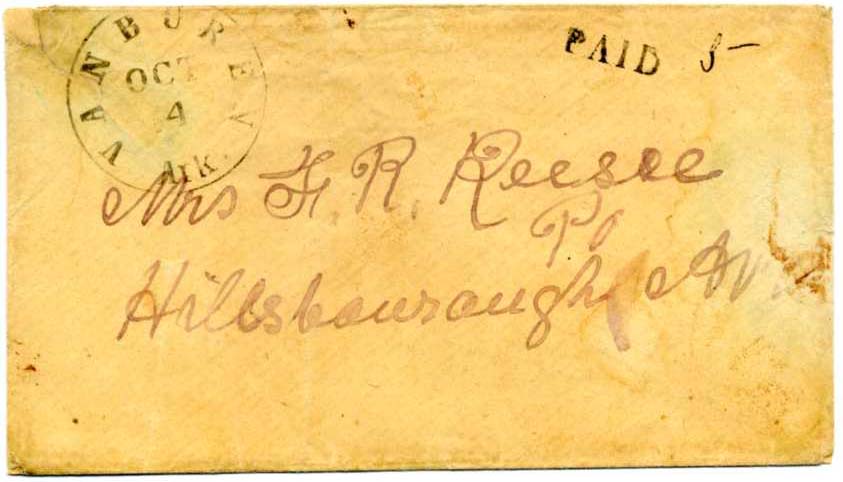 VAN BUREN
OCT
4
Ark.
PAID 5
Mrs F. R. Reesee
Po
Hillsbourough